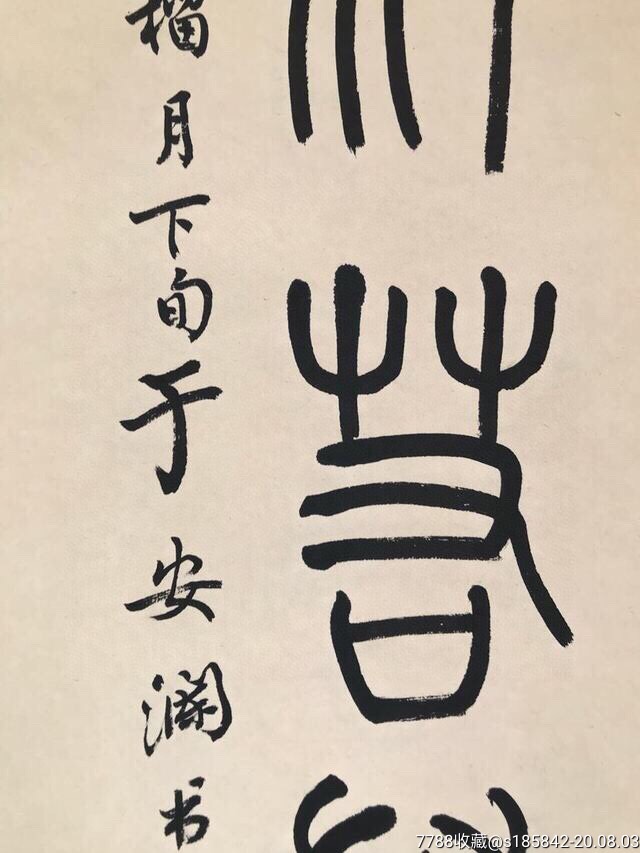 若
榴月下旬于安澜书
7788收藏@s185842-20.08.03